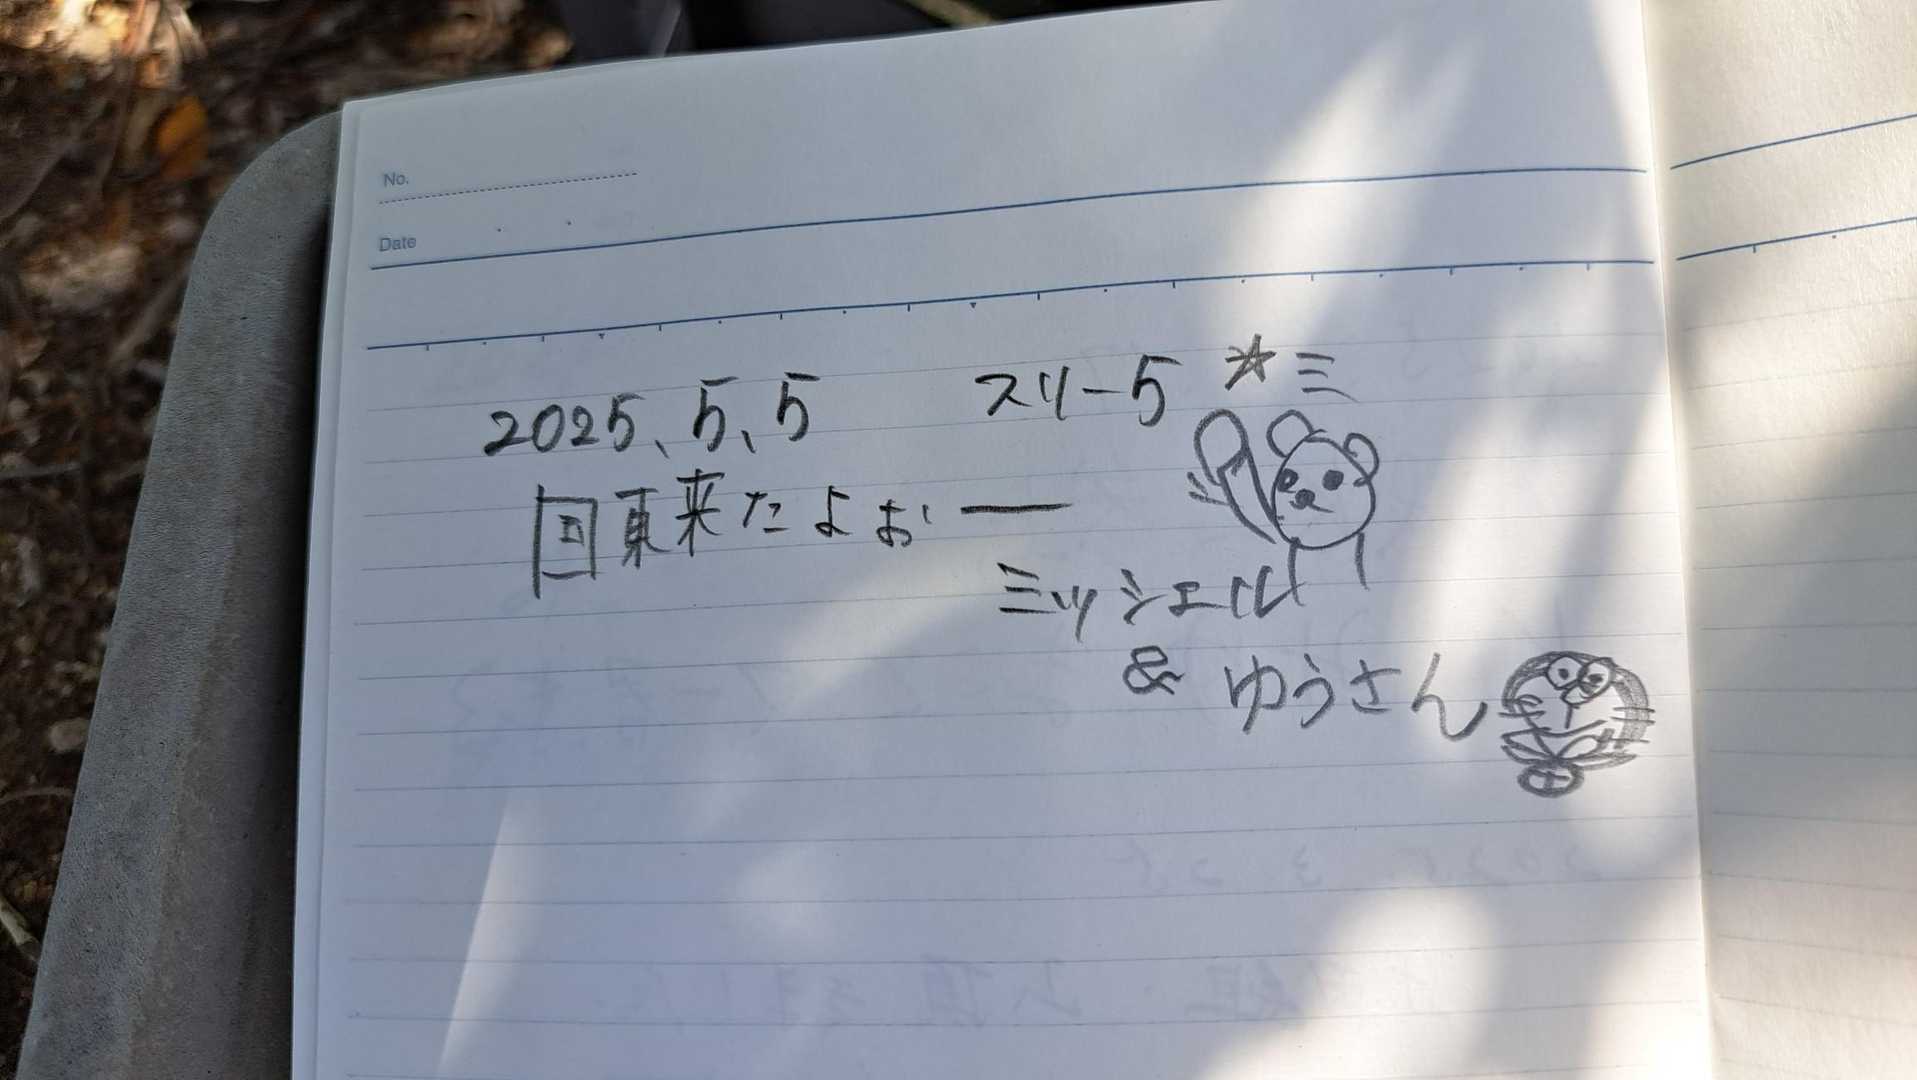 No.
Date
2025、5、5 スリー5 ☆ミ
国東来たよぉー
ミッシェル
& ゆうさん